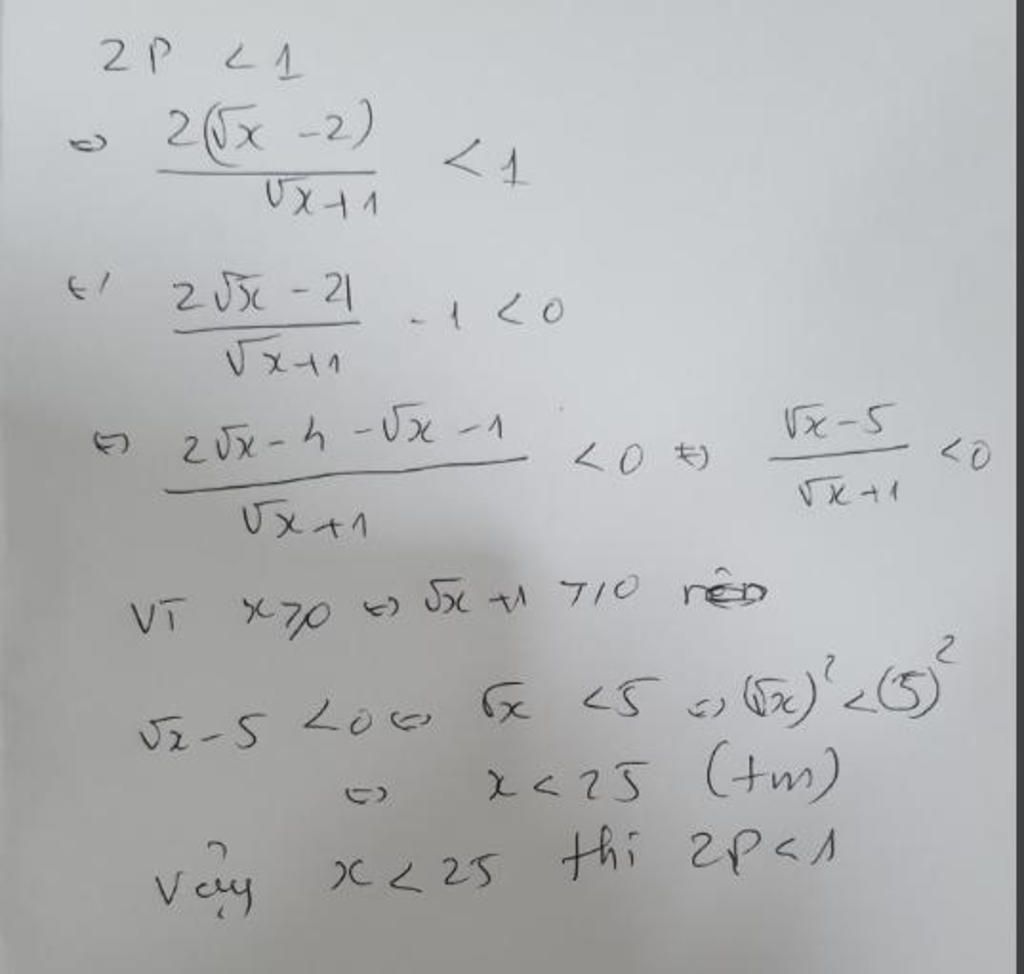 2P < 1
⇔ 2(√x - 2) / √x + 1 < 1
⇔ 2√x - 4 / √x + 1 - 1 < 0
⇔ 2√x - 4 - √x - 1 / √x + 1 < 0 ⇔ √x - 5 / √x + 1 < 0
Vì x ≥ 0 ⇔ √x + 1 ≥ 10 nên
√x - 5 < 0 ⇔ √x < 5 ⇔ (√x)² < (5)²
⇔ x < 25 (tm)
Vậy x < 25 thì 2P < 1